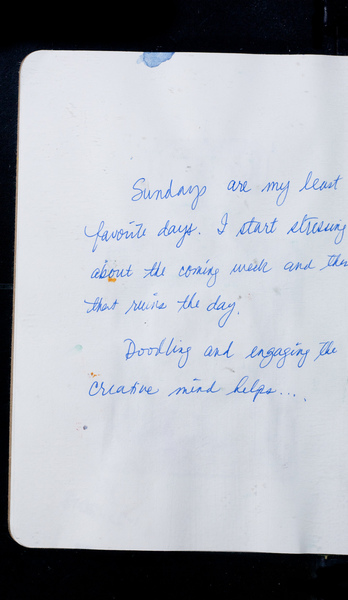 Sundays are my least
favorite days. I start stressing
about the coming week and
that ruins the day.
Doodling and engaging the
creative mind helps....